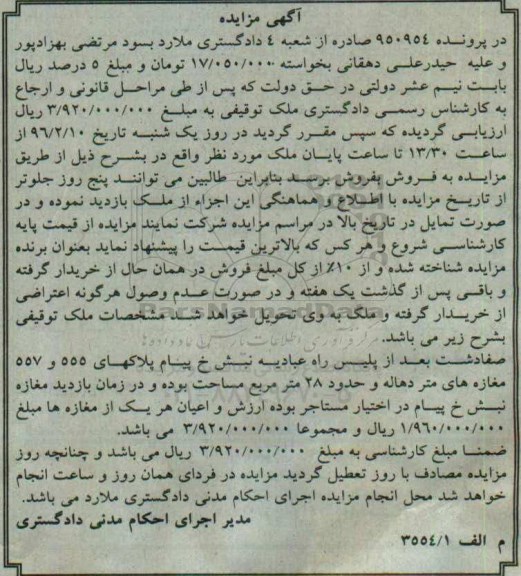 آگهی مزایده
در پرونده ۹۵۰۹۵٤ صادره از شعبه ٤ دادگستری ملارد بسود مرتضی بهزادپور
و علیه حیدرعلی دهقانی بخواسته ۱۷/۰۵۰/۰۰۰ تومان و مبلغ ۵ درصد ریال
بابت نیم عشر دولتی در حق دولت که پس از طی مراحل قانونی و ارجاع
به کارشناس رسمی دادگستری ملک توقیفی به مبلغ ۳/۹۲۰/۰۰۰/۰۰۰ ریال
ارزیابی گردیده که سپس مقرر گردید در روز یک شنبه تاریخ ۹۶/۲/۱۰ از
ساعت ۱۳/۳۰ تا ساعت پایان ملک مورد نظر واقع در بشرح ذیل از طریق
مزایده به فروش بفروش برسد بنابراین طالبین می توانند پنج روز جلوتر
از تاریخ مزایده با اطلاع و هماهنگی این اجراء از ملک بازدید نموده و در
صورت تمایل در تاریخ بالا در مراسم مزایده شرکت نمایند مزایده از قیمت پایه
کارشناسی شروع و هر کس که بالاترین قیمت را پیشنهاد نماید بعنوان برنده
مزایده شناخته شده و از ۱۰٪ از کل مبلغ فروش در همان حال از خریدار گرفته
و باقی پس از گذشت یک هفته و در صورت عدم وصول هرگونه اعتراضی
از خریدار گرفته و ملک به وی تحویل خواهد شد مشخصات ملک توقیفی
بشرح زیر می باشد.
صفادشت بعد از پلیس راه عبادیه نبش خ پیام پلاکهای ۵۵۵ و ۵۵۷
مغازه های متر دهاله و حدود ۲۸ متر مربع مساحت بوده و در زمان بازدید مغازه
نبش خ پیام در اختیار مستاجر بوده ارزش و اعیان هر یک از مغازه ها مبلغ
۱/۹۶۰/۰۰۰/۰۰۰ ریال و مجموعا ۳/۹۲۰/۰۰۰/۰۰۰ می باشد.
ضمنا مبلغ کارشناسی به مبلغ ۳/۹۲۰/۰۰۰/۰۰۰ ریال می باشد و چنانچه روز
مزایده مصادف با روز تعطیل گردید مزایده در فردای همان روز و ساعت انجام
خواهد شد محل انجام مزایده اجرای احکام مدنی دادگستری ملارد می باشد.
مدیر اجرای احکام مدنی دادگستری
م الف ۳۵۵٤/۱